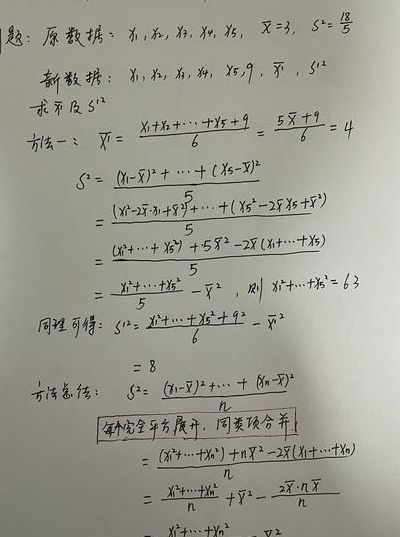 题: 原数据: x₁, x₂, x₃, x₄, x₅, x̄=3, S²=18/5
新数据: x₁, x₂, x₃, x₄, x₅, 9, x̄', S'²
求x̄'及S'²
方法一: x̄' = (x₁+x₂+⋯+x₅+9)/6 = (5x̄+9)/6 = 4
S² = ((x₁-x̄)²+⋯+(x₅-x̄)²)/5
= ((x₁²-2x̄·x₁+x̄²)+⋯+(x₅²-2x̄x₅+x̄²))/5
= ((x₁²+⋯+x₅²)+5x̄²-2x̄(x₁+⋯+x₅))/5
= (x₁²+⋯+x₅²)/5 - x̄², 则 x₁²+⋯+x₅²=63
同理可得: S'² = (x₁²+⋯+x₅²+9²)/6 - x̄'²
= 8
方法总结: S² = ((x₁-x̄)²+⋯+(xₙ-x̄)²)/n
每个完全平方展开, 同类项合并
= ((x₁²+⋯+xₙ²)+nx̄²-2x̄(x₁+⋯+xₙ))/n
= (x₁²+⋯+xₙ²)/n + x̄² - (2x̄·nx̄)/n
= x₁²+⋯+xₙ² - x̄²